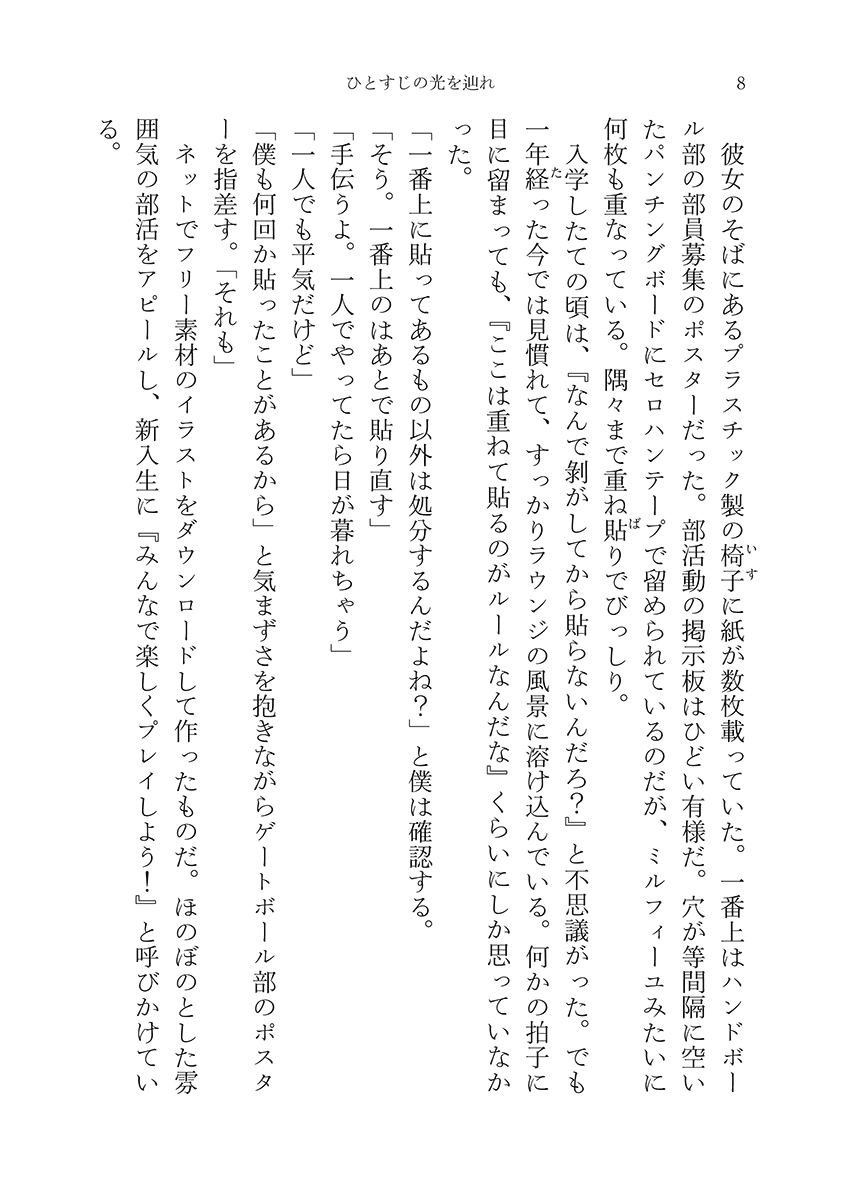 ひとすじの光を辿れ
8
彼女のそばにあるプラスチック製の椅子に紙が数枚載っていた。一番上はハンドボー
ル部の部員募集のポスターだった。部活動の掲示板はひどい有様だ。穴が等間隔に空い
たパンチングボードにセロハンテープで留められているのだが、ミルフィーユみたいに
何枚も重なっている。隅々まで重ね貼りでびっしり。
入学したての頃は、『なんで剝がしてから貼らないんだろ？』と不思議がった。でも
一年経った今では見慣れて、すっかりラウンジの風景に溶け込んでいる。何かの拍子に
目に留まっても、『ここは重ねて貼るのがルールなんだな』くらいにしか思っていなか
った。
「一番上に貼ってあるもの以外は処分するんだよね？」と僕は確認する。
「そう。一番上のはあとで貼り直す」
「手伝うよ。一人でやってたら日が暮れちゃう」
「一人でも平気だけど」
「僕も何回か貼ったことがあるから」と気まずさを抱きながらゲートボール部のポスタ
ーを指差す。「それも」
ネットでフリー素材のイラストをダウンロードして作ったものだ。ほのぼのとした雰
囲気の部活をアピールし、新入生に『みんなで楽しくプレイしよう！』と呼びかけてい
る。
いす
ば
た